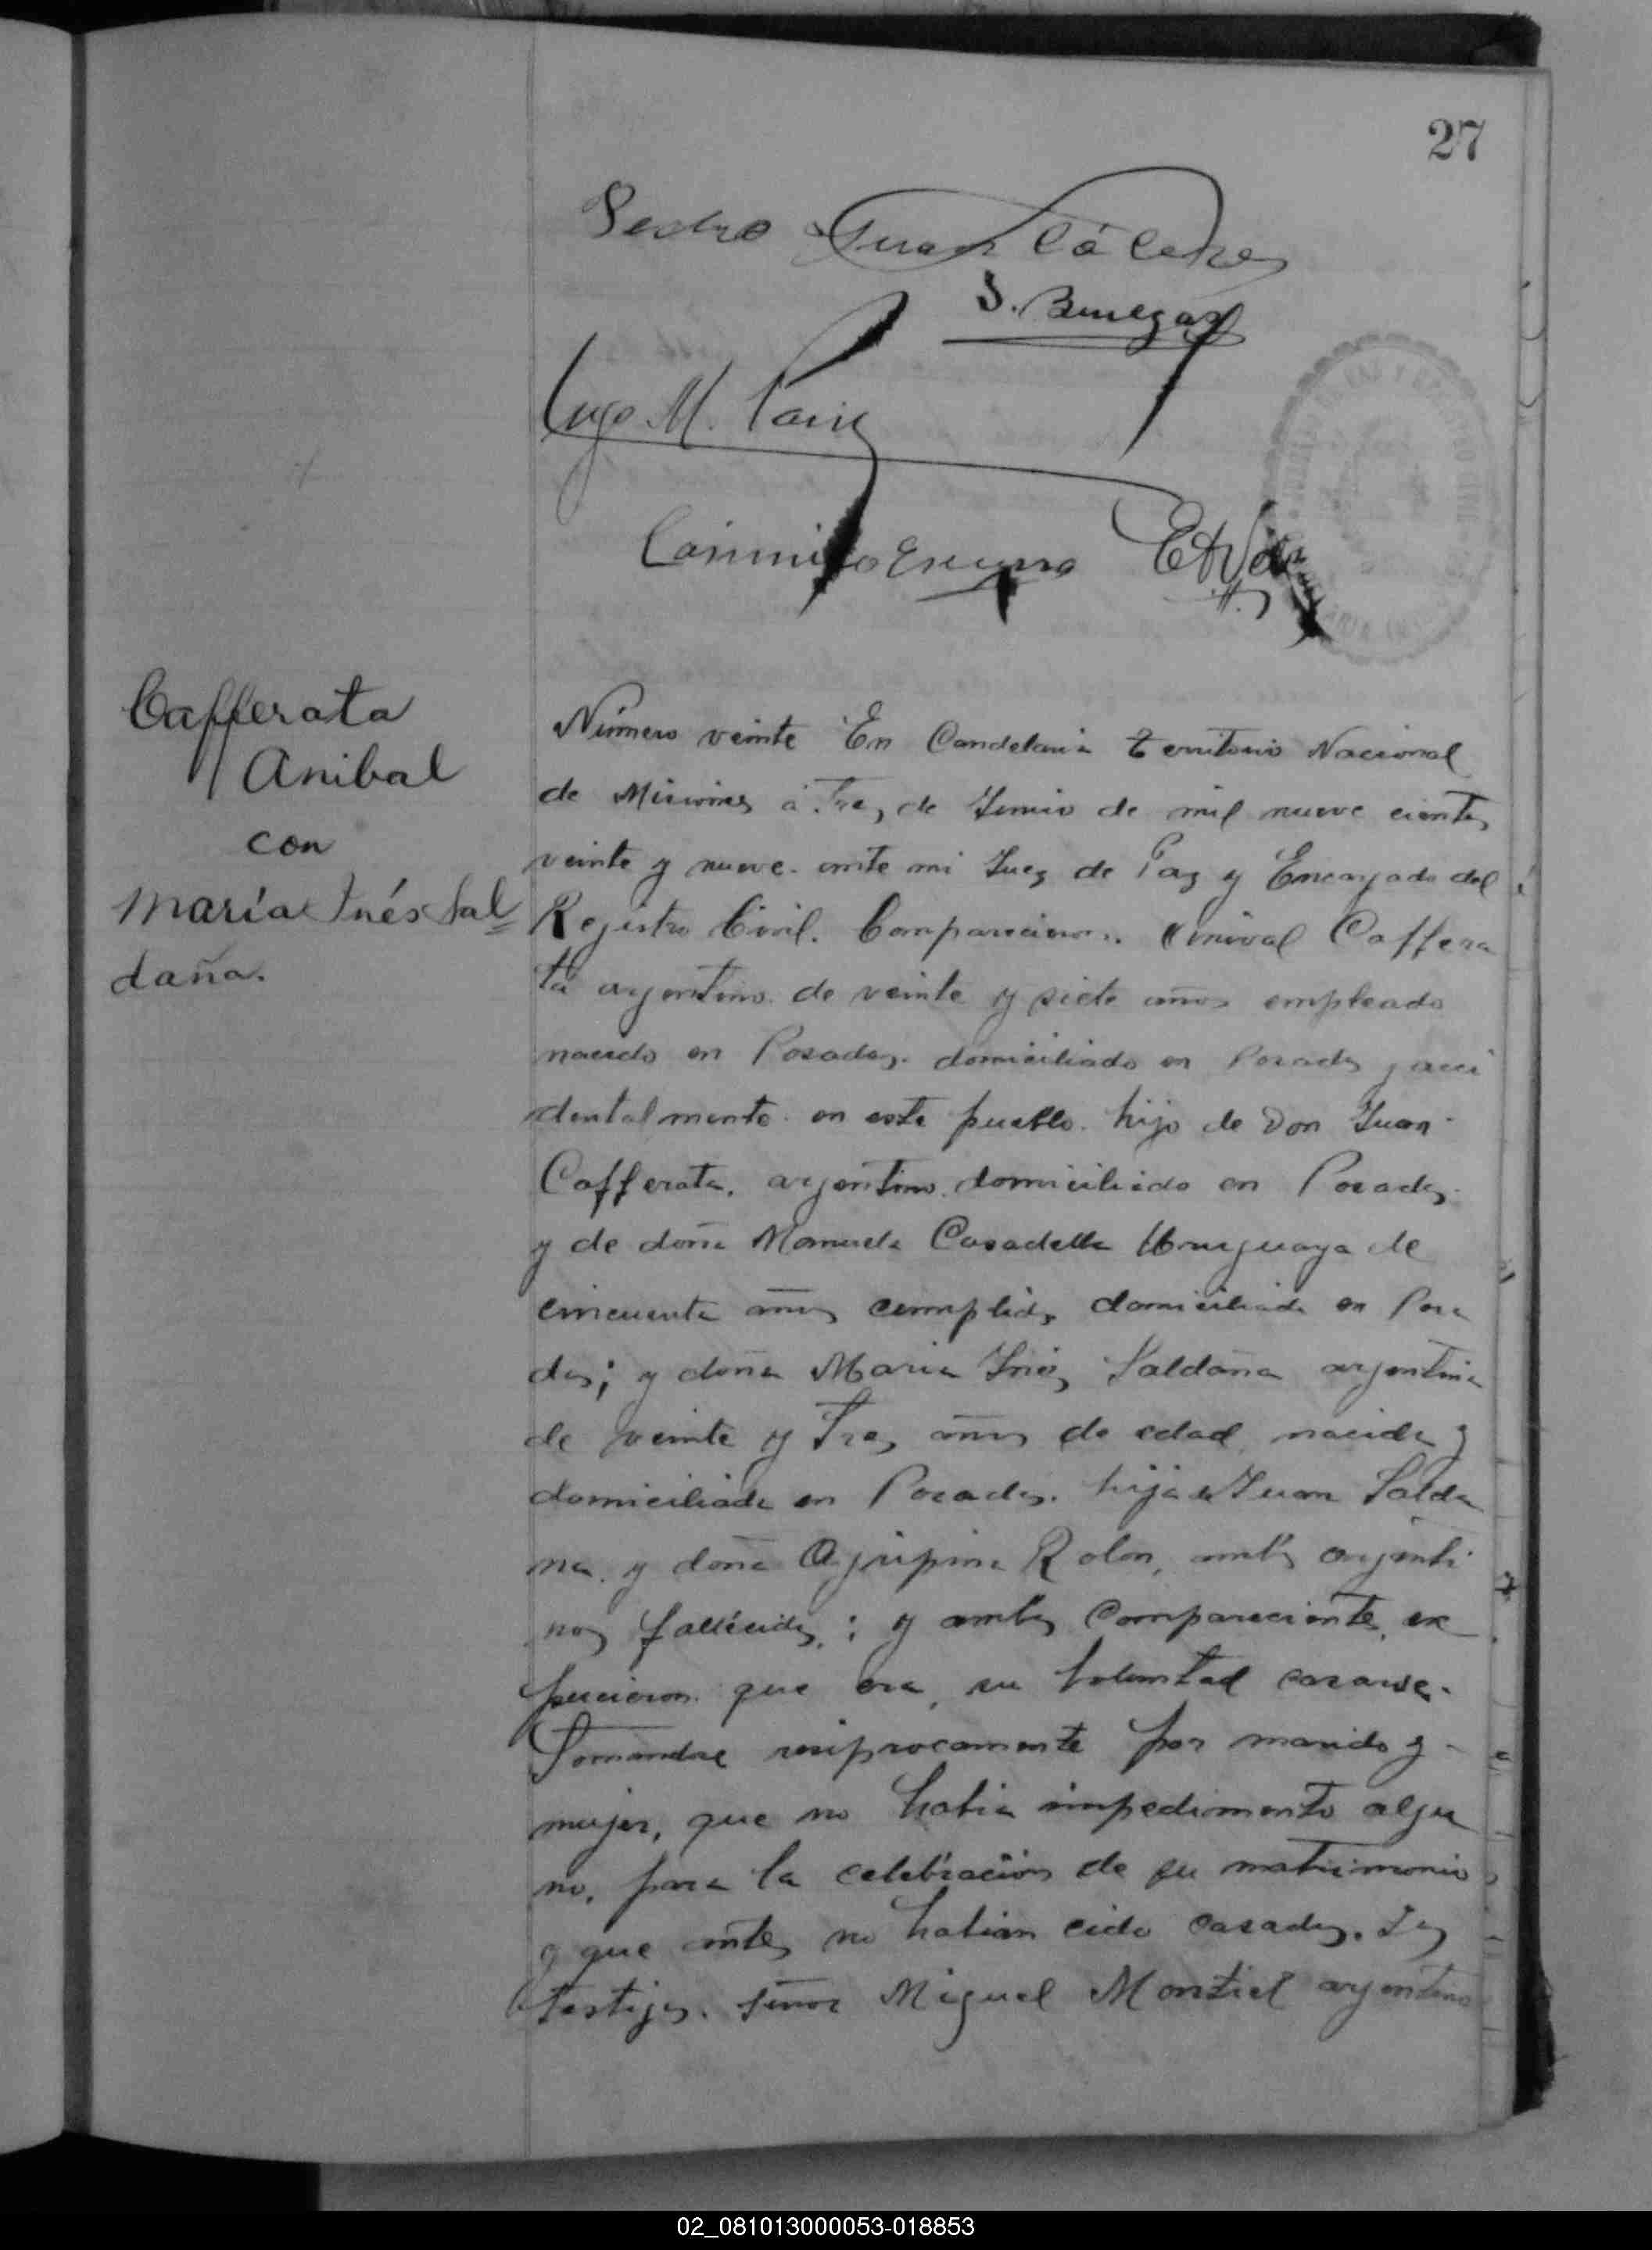 27
Pedro Juan Cáceres
S. Benegas
Lugo M.
Casimiro
Cafferata
Anibal
con
María Inés Sal
daña.
Número veinte En Candelaria territorio Nacional
de Misiones á tres de Junio de mil nueve cientos
veinte y nueve. ante mi Juez de Paz y Encargado del
Registro Civil. Comparecieron. Anival Caffera
ta argentino. de veinte y siete años empleado
nacido en Posadas. domiciliado en Posadas y acci
dentalmente en este pueblo. hijo de Don Juan
Cafferata. argentino. domiciliado en Posadas.
y de doña Manuela Casadella Uruguaya de
cincuenta años cumplidos domiciliada en Posa
das; y doña Maria Inés Saldaña argentina
de veinte y Tres años de edad nacida y
domiciliada en Posadas. hija de Juan Salda
ña. y doña Agripina Rolon, ambos argenti
nos fallécidos; y ambos Comparecientes, ex
pucieron que era su boluntad casarse.
Tomandose resiprocamente por marido y
mujer, que no habia impedimento algu
no. para la celebración de su matrimonio
y que antes no habian cido casados. Los
testigos. señor Miguel Montiel argentino
02_081013000053-018853